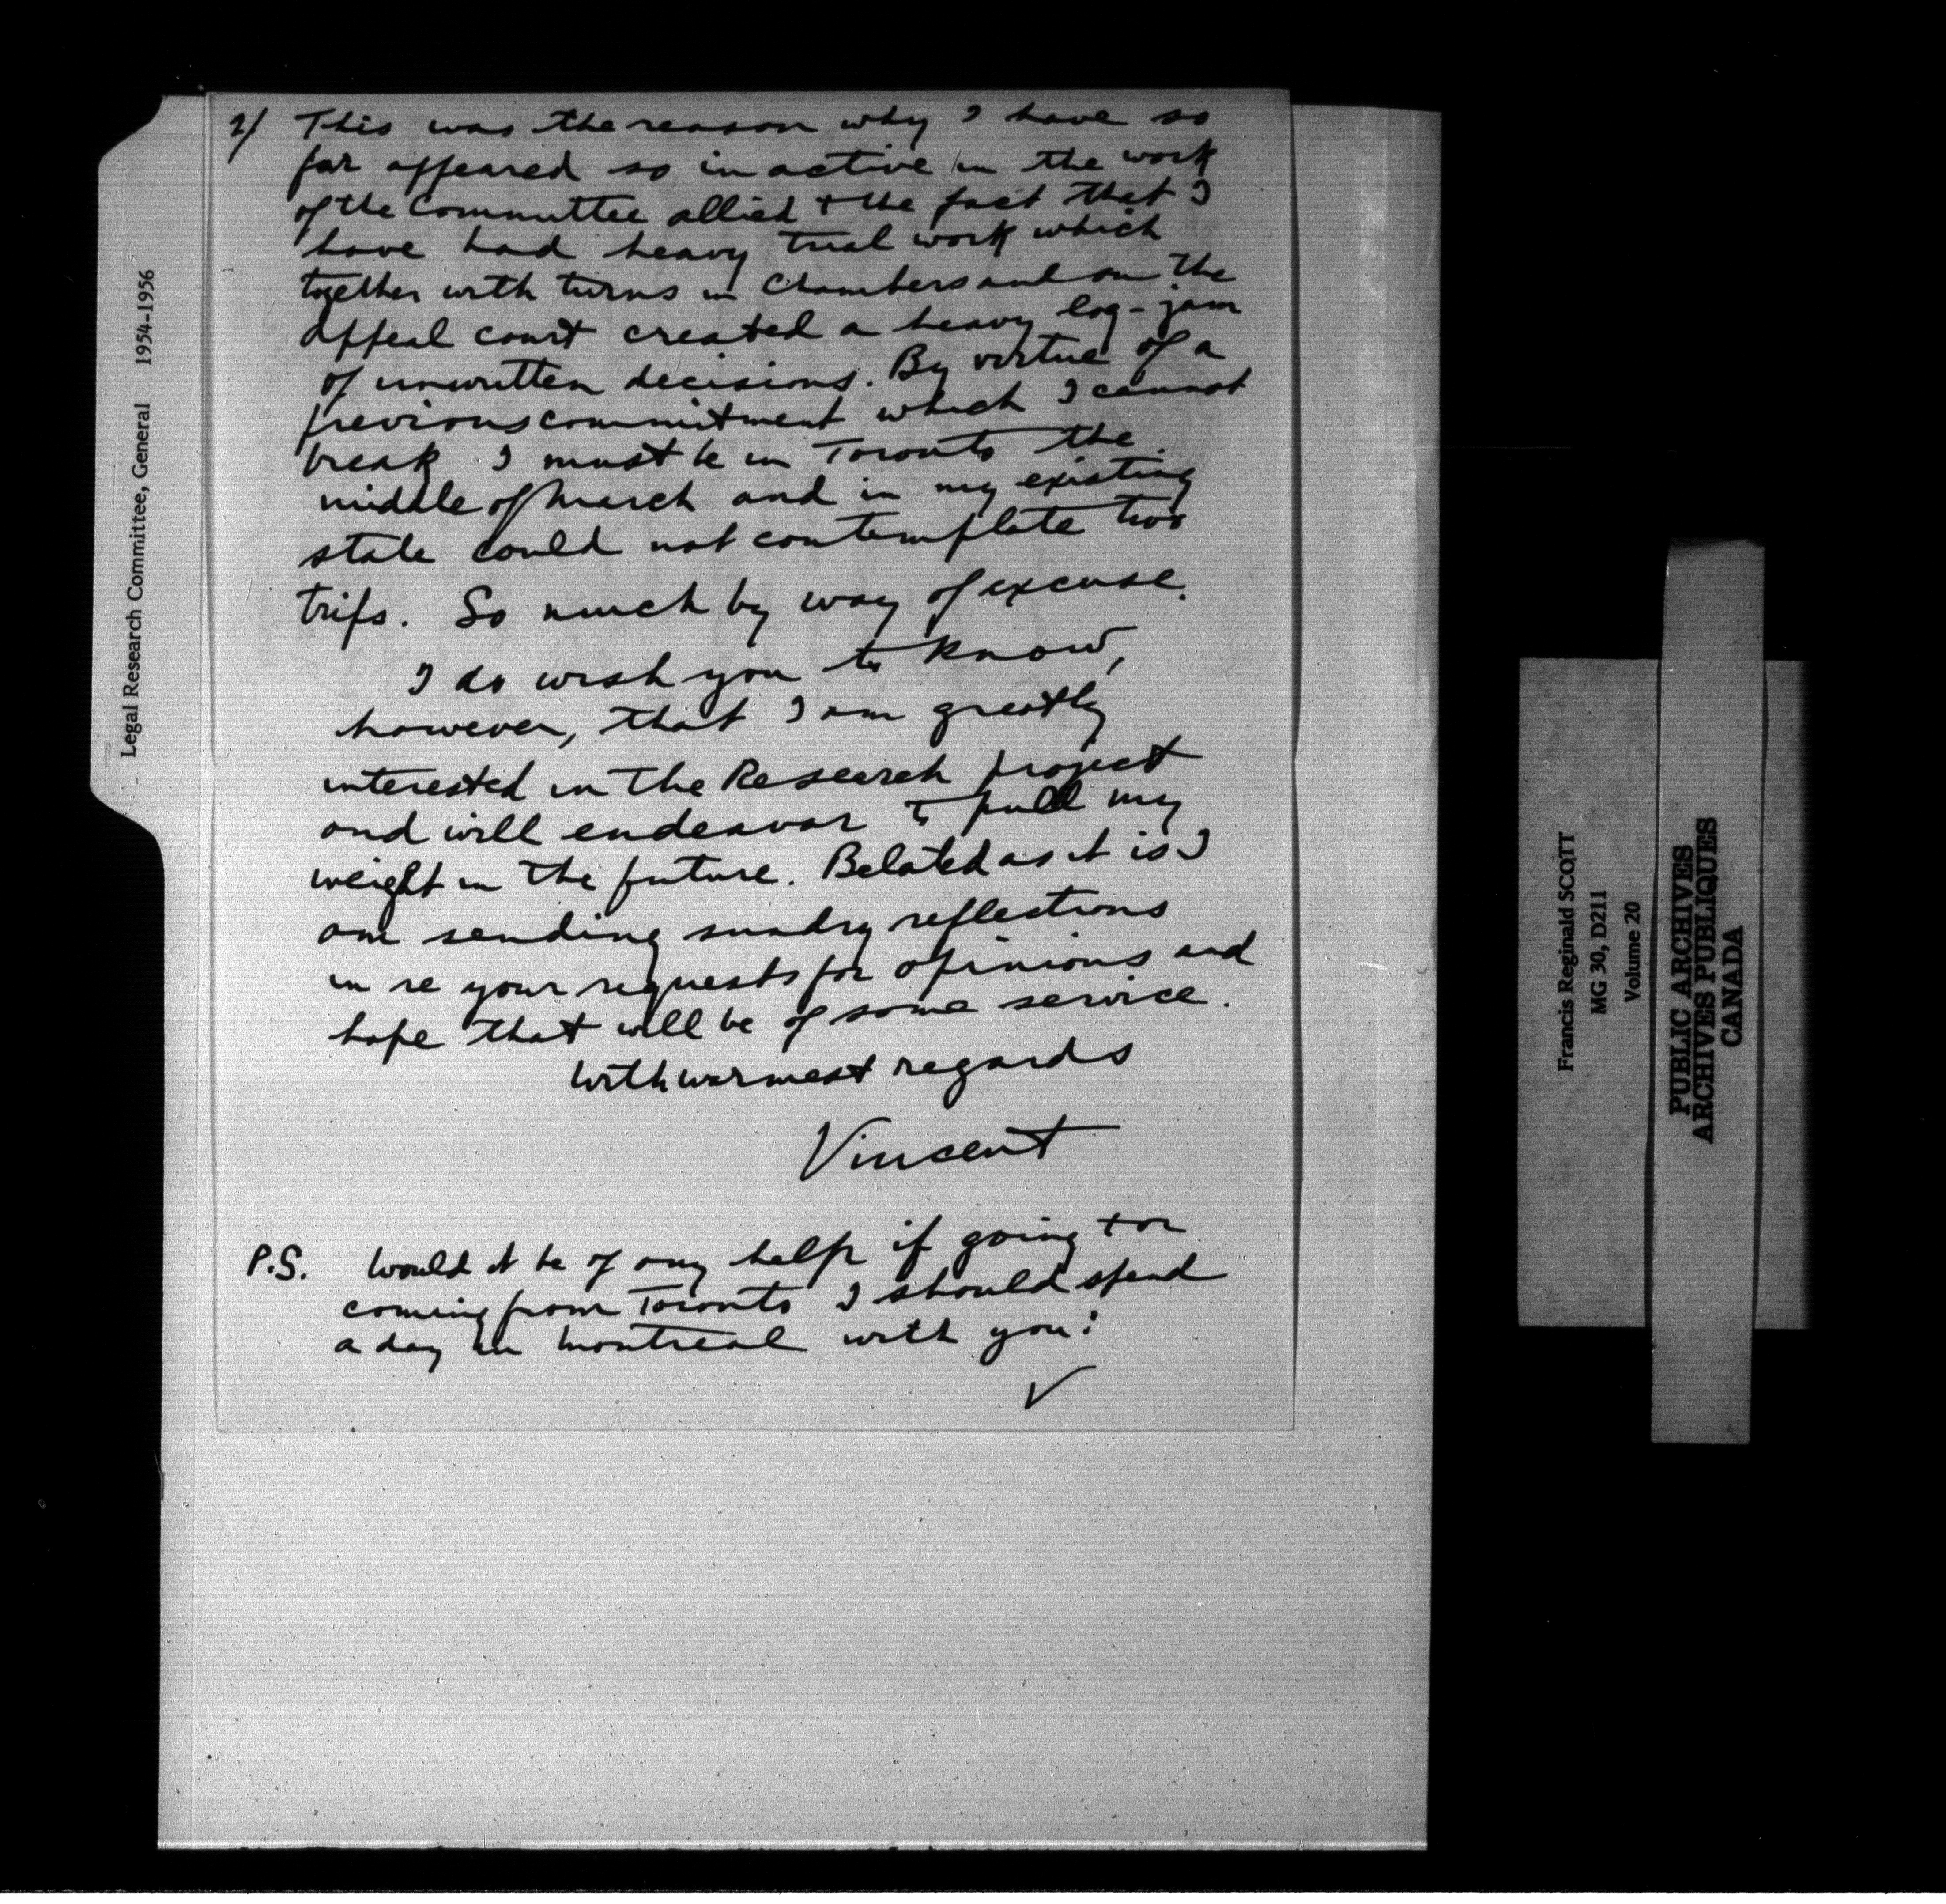 2/ This was the reason why I have so
far appeared so inactive in the work
of the Committee allied to the fact that I
have had heavy trial work which
together with turns in Chambers and on the
Appeal court created a heavy log-jam
of unwritten decisions. By virtue of a
previous commitment which I cannot
break I must be in Toronto the
middle of March and in my existing
state could not contemplate two
trips. So much by way of excuse.
I do wish you to know,
however, that I am greatly
interested in the Research project
and will endeavor to pull my
weight in the future. Belated as it is I
am sending sundry reflections
in re your requests for opinions and
hope that will be of some service.
With warmest regards
Vincent
P.S. Would it be of any help if going to or
coming from Toronto I should spend
a day in Montreal with you?
V
Legal Research Committee, General 1954-1956
Francis Reginald SCOTT
MG 30, D211
Volume 20
PUBLIC ARCHIVES
ARCHIVES PUBLIQUES
CANADA